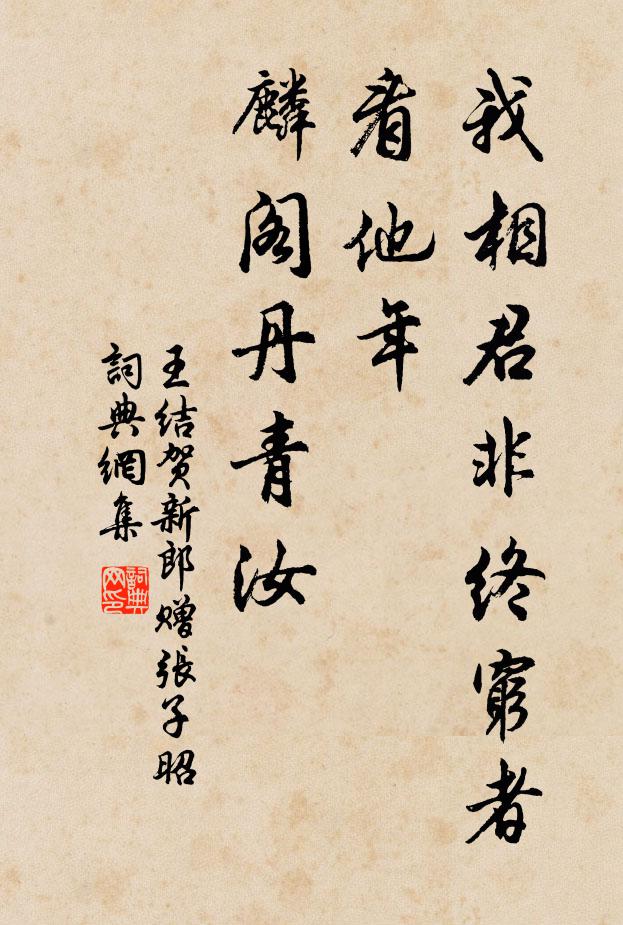 我相君非终窮者
看他年
麟阁丹青汝
王结贺新郎赠張子昭
詞典網集
詞典
网印